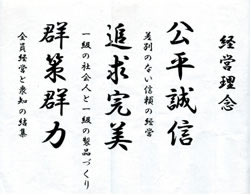 経営理念
公平誠信
差別のない信頼の経営
追求完美
一級の社会人と一級の製品づくり
群策群力
全員経営と衆知の結集